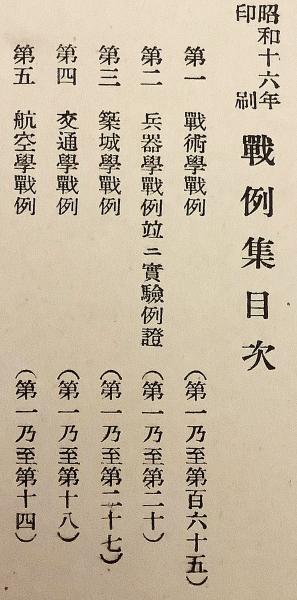 昭和十六年
印刷
戰例集目次
第一　戰術學戰例　（第一乃至第百六十五）
第二　兵器學戰例竝ニ實驗例證　（第一乃至第二十）
第三　築城學戰例　（第一乃至第二十七）
第四　交通學戰例　（第一乃至第十八）
第五　航空學戰例　（第一乃至第十四）